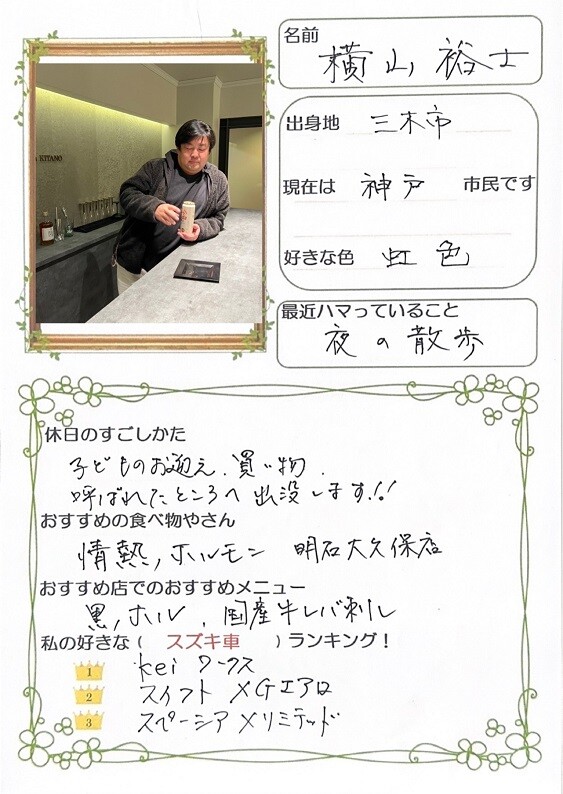 KITANO
名前
横山 裕士
出身地 三木市
現在は 神戸 市民です
好きな色 虹色
最近ハマっていること
夜の散歩
休日のすごしかた
子どものお迎え、買い物、
呼ばれたところへ出没します!!
おすすめの食べ物やさん
情熱ノホルモン 明石大久保店
おすすめ店でのおすすめメニュー
黒ノホル、国産牛レバ刺し
私の好きな( スズキ車 )ランキング!
1 kei ワークス
2 スイフト XGエアロ
3 スペーシア Xリミテッド